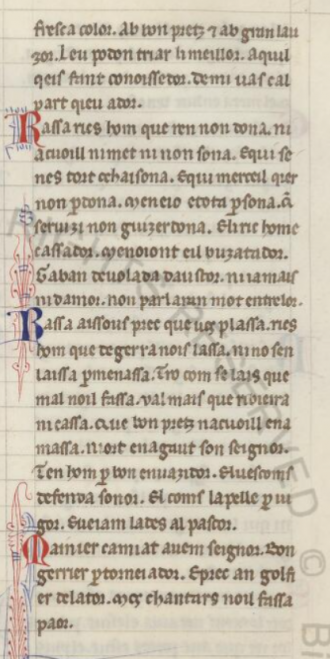 fresca color. Ab bon pretz ⁊ ab gran lau
zor. Leu podon triar li meillor. Aquil
qeis fant conoissedor. de mi uas cal
part qieu ador.
Rassa rics hom que ren non dona. ni
acuoill ni met ni non sona. E qui se
nes tort ochaisona. E qui merceil quer
non pdona. Meneio e tota psona. q̃
seruizi non guizerdona. El ric home
cassador. Menoiont eil buzatador.
Gaban de uolada daustor. ni iamais
ni damor. non parlaran mot entrelor.
Rassa aissous prec que uos plassa. rics
hom que de gerra nois lassa. ni no sen
laissa p menassa. Tro com se lais que
mal noil fassa. val mais que riuieira
ni cassa. Que bon pretz nacuoill e na
massa. Mort en agaut son seignor.
Ten hom p bon enuazidor. El uescoms
defenda sonor. El coms lapelle p ui
gor. E ueiam lades al pastor.
Mainier camiat auem seignor. Bon
gerrier ptorneiador. E prec an golfi
er de lator. Mos chanturs noil fassa
paor.